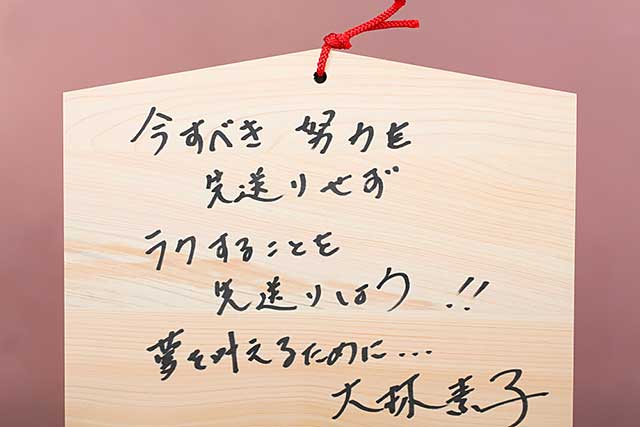 今すべき 努力を
先送りせず
ラクすることを
先送りしよう !!
夢を叶えるために...
大林素子